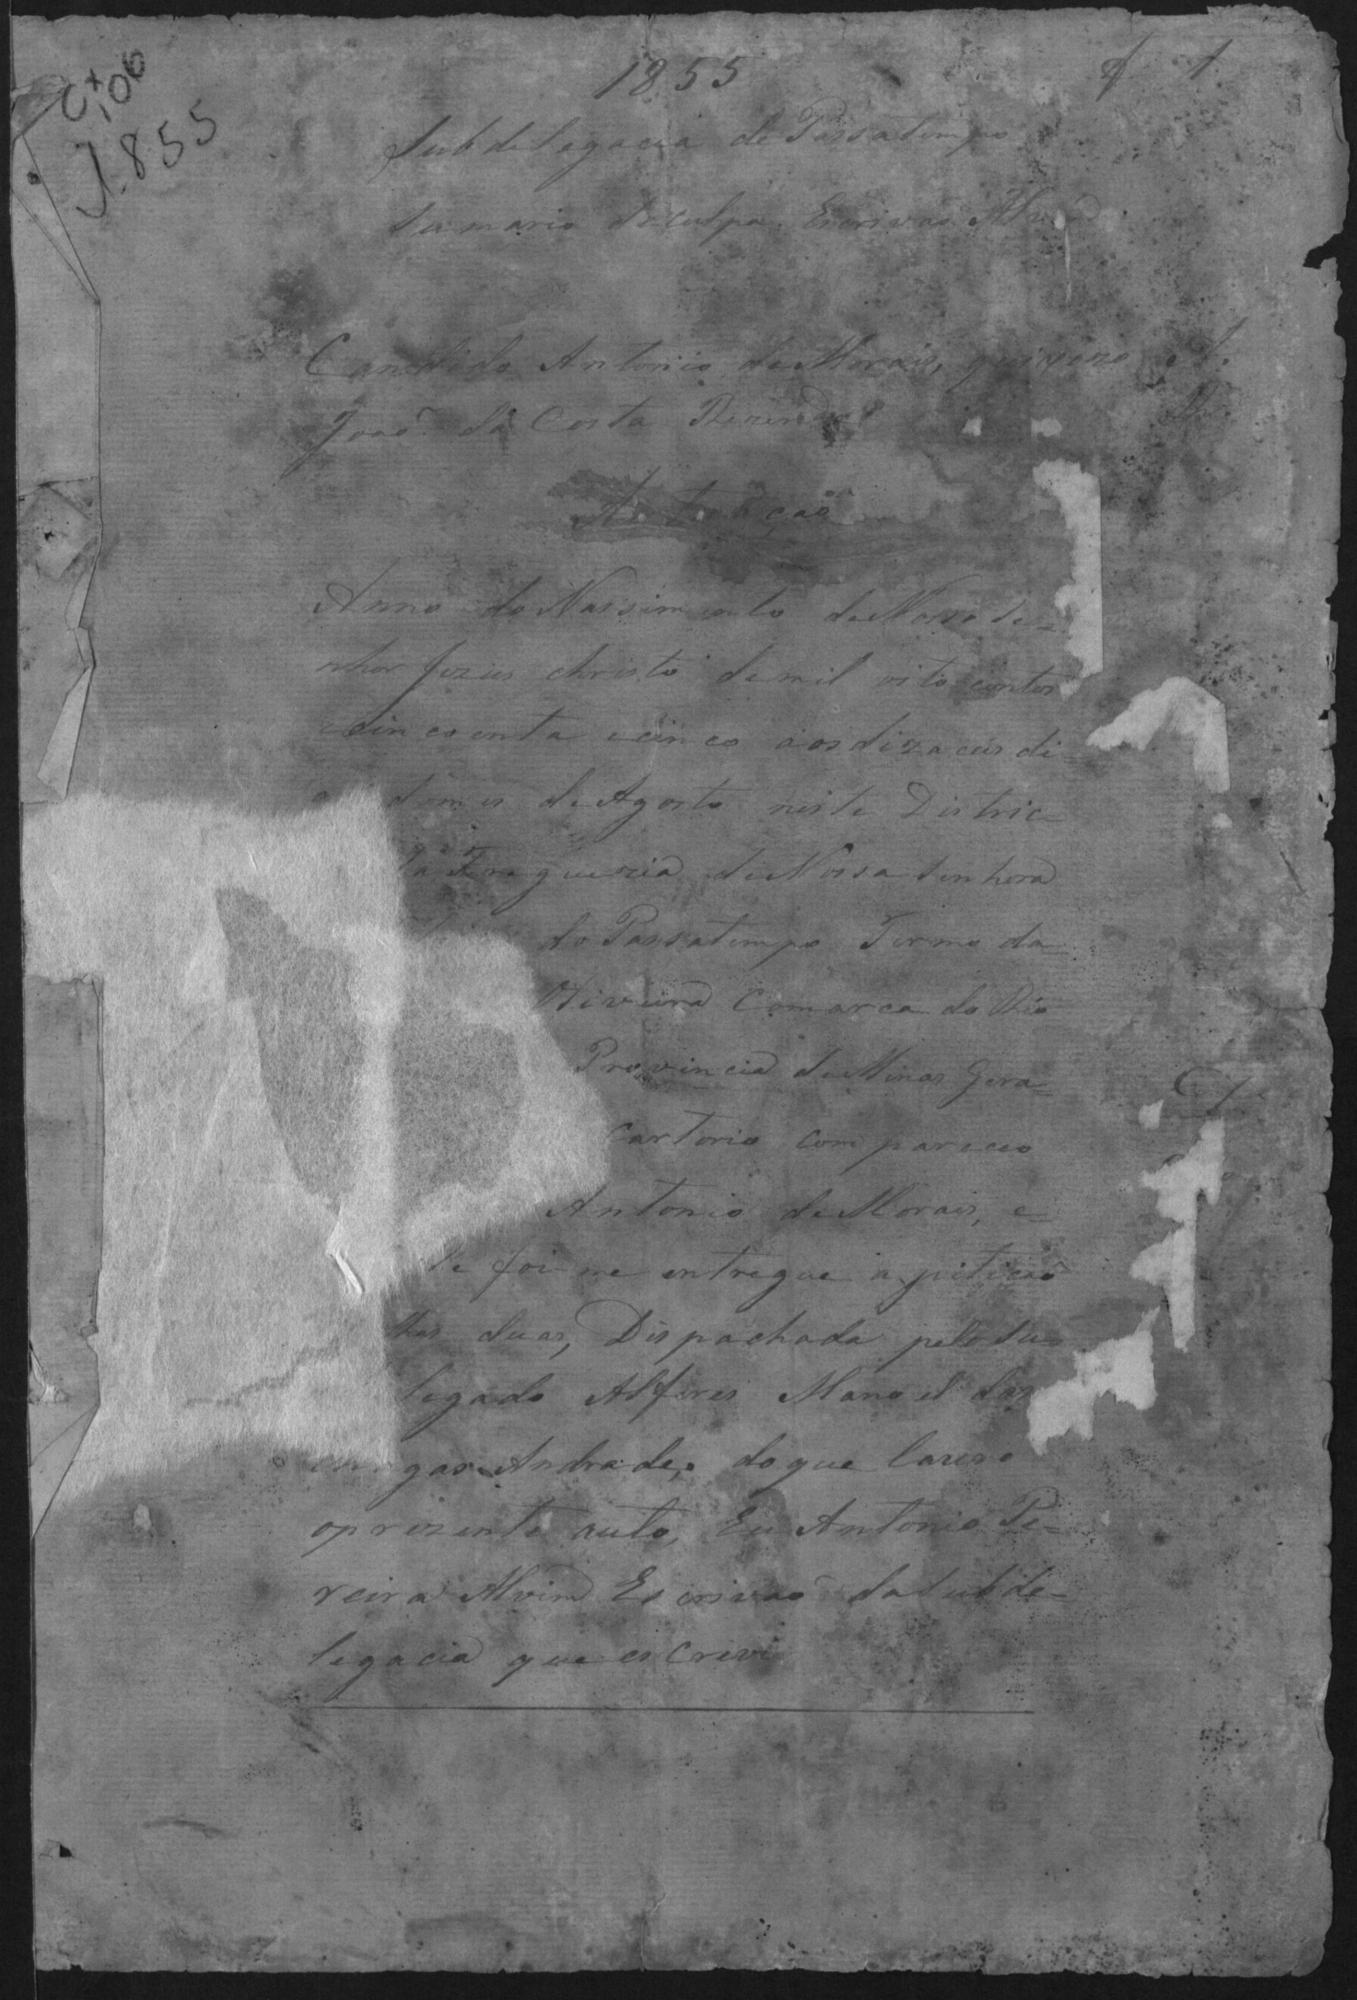 Cx 06
1.855
1855
f 1
Subdelegacia de Passatempo
Summario de culpa. Escrivaõ Alvim
Candido Antonio de Morais, queixozo A.
Joaõ da Costa Rezende R.
Autoaçaõ
Anno do Nassimento de Nosso Se=
nhor Jezus Christo de mil oito centos
e cincoenta e cinco aos dizaceis di
do mes de Agosto neste Distric=
da Freguezia de Nossa Senhora
do Passatempo Termo da
Oliveira Comarca do Rio
Provincia de Minas Gera=
cartorio compareceo
Antonio de Morais, e=
le foi-me entregue a petiçaõ
lhas duas, Dispachada pelo Su
legado Alferes Manoel
gas Andrade, do que lavro
o prezente auto, Eu Antonio Pe=
reira Alvim Escrivaõ da Subde=
legacia que escrevi